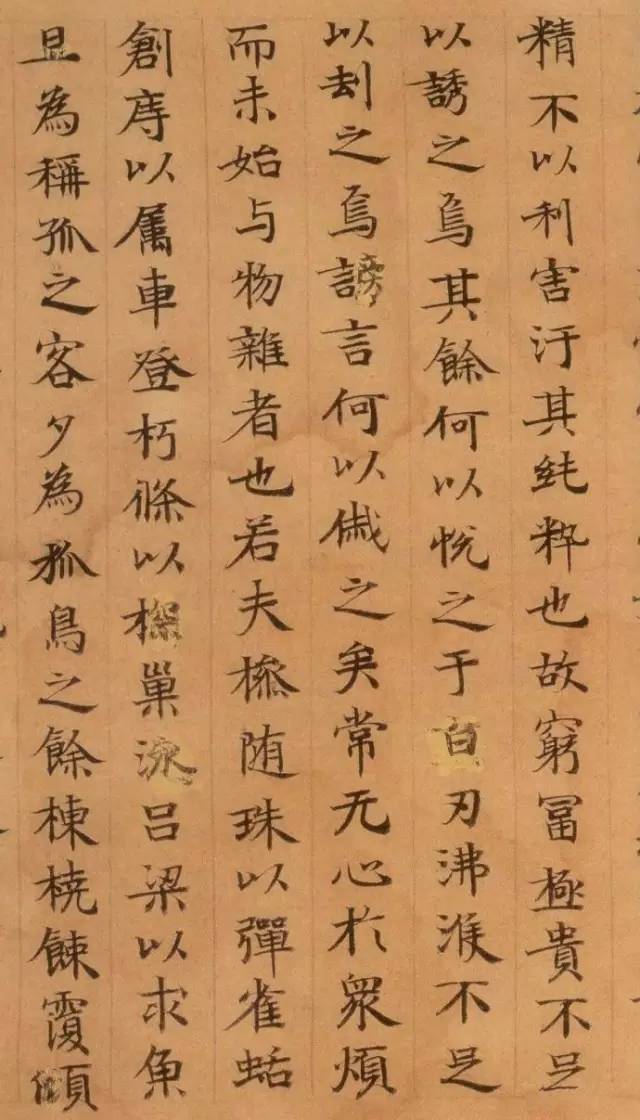 精不以利害汙其純粹也故窮冨極貴不足
以誘之焉其餘何以悅之于白刃沸濩不足
以刦之焉謗言何以慽之矣常无心於衆煩
而未始与物雜者也若夫㯟随珠以彈雀蛞
創庤以属車登朽條以探巢泳吕梁以求魚
旦為稱孤之客夕為狐鳥之餘棟橈餗覆傾